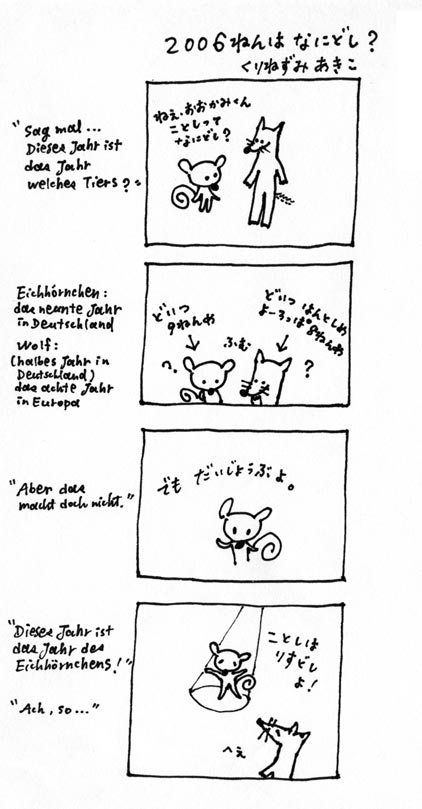 2006ねんは なにどし?
くりねずみ あきこ
"Sag mal...
Dieses Jahr ist
das Jahr
welches Tiers?"
ねえ、おおかみくん
ことしって
なにどし?
Eichhörnchen:
das neunte Jahr
in Deutschland
Wolf:
(halbes Jahr in
Deutschland)
das achte Jahr
in Europa
どいつ
9ねんめ
?
ふむ
どいつ はんとしめ
よーろっぱ 8ねんめ
?
"Aber das
macht doch nicht."
でも だいじょうぶよ。
"Dieses Jahr ist
das Jahr des
Eichhörnchens!"
"Ach, so..."
ことしは
りすどし
よ!
へえ